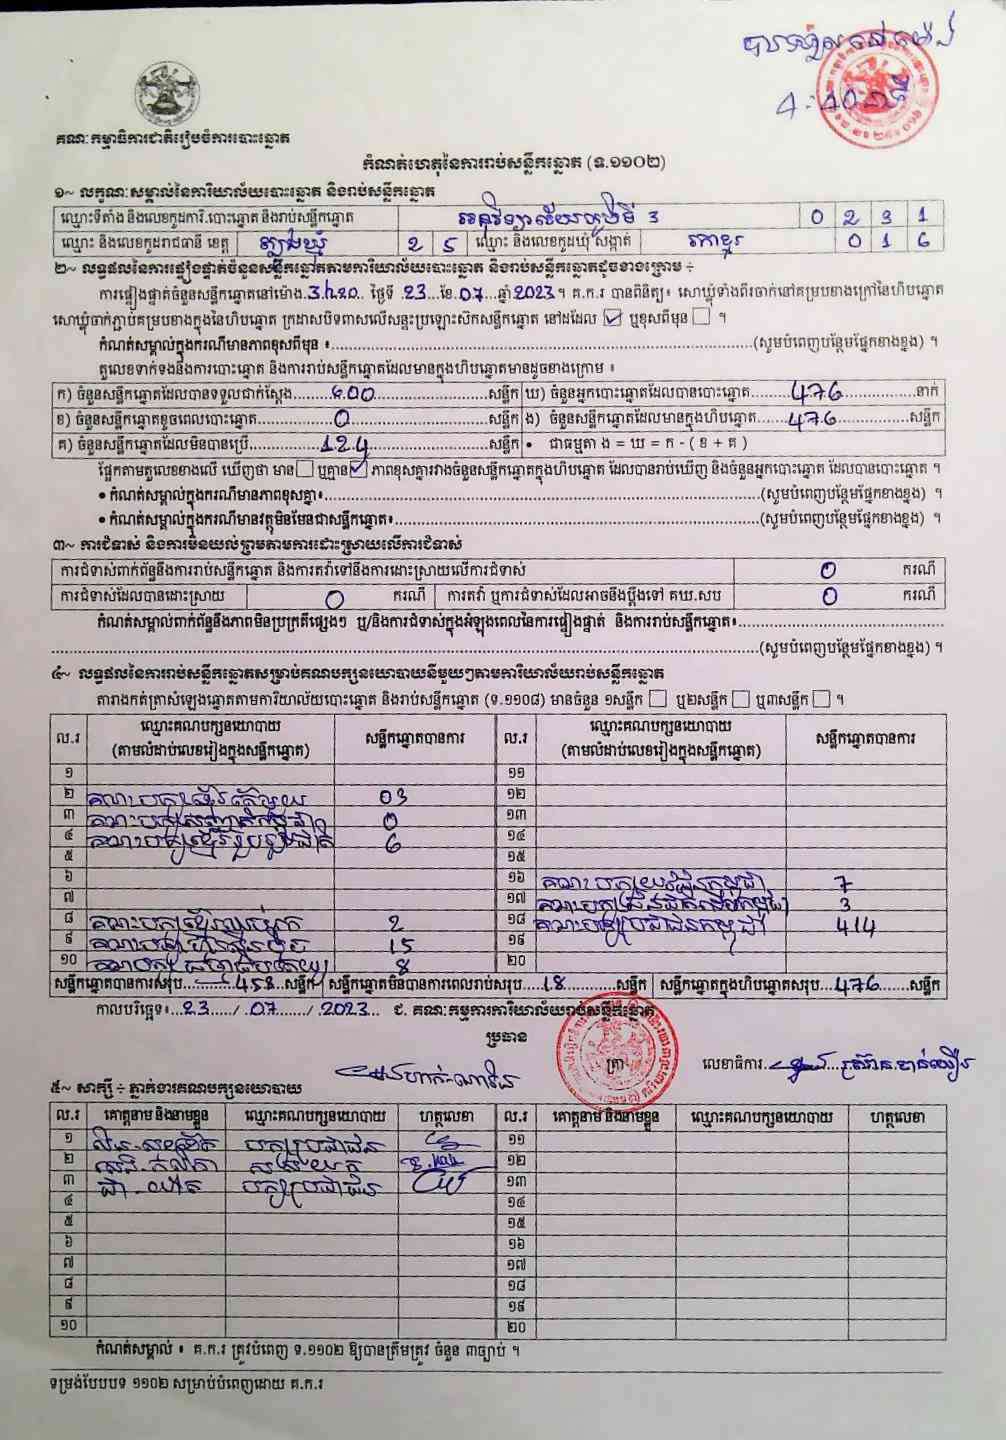 4:40
គណៈកម្មាធិការជាតិរៀបចំការបោះឆ្នោត
កំណត់ហេតុនៃការរាប់សន្លឹកឆ្នោត (ទ.១១០២)
១~ លក្ខណៈសម្គាល់នៃការិយាល័យបោះឆ្នោត និងរាប់សន្លឹកឆ្នោត
ឈ្មោះទីតាំង និងលេខកូដការិ.បោះឆ្នោត និងរាប់សន្លឹកឆ្នោត 3 0 2 3 1
ឈ្មោះ និងលេខកូដរាជធានី ខេត្ត ត្បូងឃ្មុំ 2 5 ឈ្មោះ និងលេខកូដឃុំ សង្កាត់ 0 1 6
២~ លទ្ធផលនៃការផ្ទៀងផ្ទាត់ចំនួនសន្លឹកឆ្នោតតាមការិយាល័យបោះឆ្នោត និងរាប់សន្លឹកឆ្នោតដូចខាងក្រោម ៖
ការផ្ទៀងផ្ទាត់ចំនួនសន្លឹកឆ្នោតនៅម៉ោង.3h20.. ថ្ងៃទី .23...ខែ.07...ឆ្នាំ2023.។ គ.ក.រ បានពិនិត្យ៖ សោឃ្លុំទាំងពីរចាក់នៅគម្របខាងក្រៅនៃហិបឆ្នោត
សោឃ្លុំចាក់ភ្ជាប់គម្របខាងក្នុងនៃហិបឆ្នោត ក្រដាសបិទពាសលើសន្ទះប្រឡោះស៊កសន្លឹកឆ្នោត នៅដដែល ☑ ឬខុសពីមុន ☐ ។
កំណត់សម្គាល់ក្នុងករណីមានភាពខុសពីមុន ៖......(សូមបំពេញបន្ថែមផ្នែកខាងខ្នង) ។
តួលេខទាក់ទងនឹងការបោះឆ្នោត និងការរាប់សន្លឹកឆ្នោតដែលមានក្នុងហិបឆ្នោតមានដូចខាងក្រោម ៖
ក) ចំនួនសន្លឹកឆ្នោតដែលបានទទួលជាក់ស្តែង........600......សន្លឹក ឃ) ចំនួនអ្នកបោះឆ្នោតដែលបានបោះឆ្នោត........476......នាក់
ខ) ចំនួនសន្លឹកឆ្នោតខូចពេលបោះឆ្នោត........0......សន្លឹក ង) ចំនួនសន្លឹកឆ្នោតដែលមានក្នុងហិបឆ្នោត........476......សន្លឹក
គ) ចំនួនសន្លឹកឆ្នោតដែលមិនបានប្រើ........124......សន្លឹក • ជាធម្មតា ង = ឃ = ក - ( ខ + គ )
ផ្អែកតាមតួលេខខាងលើ ឃើញថា មាន☐ ឬគ្មាន☑ ភាពខុសគ្នារវាងចំនួនសន្លឹកឆ្នោតក្នុងហិបឆ្នោត ដែលបានរាប់ឃើញ និងចំនួនអ្នកបោះឆ្នោត ដែលបានបោះឆ្នោត ។
• កំណត់សម្គាល់ក្នុងករណីមានភាពខុសគ្នា៖......(សូមបំពេញបន្ថែមផ្នែកខាងខ្នង) ។
• កំណត់សម្គាល់ក្នុងករណីមានវត្ថុមិនមែនជាសន្លឹកឆ្នោត៖......(សូមបំពេញបន្ថែមផ្នែកខាងខ្នង) ។
៣~ ការជំទាស់ និងការមិនយល់ព្រមតាមការដោះស្រាយលើការជំទាស់
ការជំទាស់ពាក់ព័ន្ធនឹងការរាប់សន្លឹកឆ្នោត និងការតវ៉ាទៅនឹងការដោះស្រាយលើការជំទាស់ 0 ករណី
ការជំទាស់ដែលបានដោះស្រាយ 0 ករណី ការតវ៉ា ឬការជំទាស់ដែលអាចនឹងប្តឹងទៅ គឃ.សប 0 ករណី
កំណត់សម្គាល់ពាក់ព័ន្ធនឹងភាពមិនប្រក្រតីផ្សេងៗ ឬ/និងការជំទាស់ក្នុងអំឡុងពេលនៃការផ្ទៀងផ្ទាត់ និងការរាប់សន្លឹកឆ្នោត៖......
......(សូមបំពេញបន្ថែមផ្នែកខាងខ្នង) ។
៤~ លទ្ធផលនៃការរាប់សន្លឹកឆ្នោតសម្រាប់គណបក្សនយោបាយនីមួយៗតាមការិយាល័យរាប់សន្លឹកឆ្នោត
តារាងកត់ត្រាសំឡេងឆ្នោតតាមការិយាល័យបោះឆ្នោត និងរាប់សន្លឹកឆ្នោត (ទ.១១០៨) មានចំនួន ១សន្លឹក ☐ ឬ២សន្លឹក ☐ ឬ៣សន្លឹក ☐ ។
ល.រ ឈ្មោះគណបក្សនយោបាយ (តាមលំដាប់លេខរៀងក្នុងសន្លឹកឆ្នោត) សន្លឹកឆ្នោតបានការ ល.រ ឈ្មោះគណបក្សនយោបាយ (តាមលំដាប់លេខរៀងក្នុងសន្លឹកឆ្នោត) សន្លឹកឆ្នោតបានការ
១ ១១
២ គណបក្សខ្មែរតែមួយ 03 ១២
៣ 0 ១៣
៤ គណបក្សខ្មែររួបរួមជាតិ 6 ១៤
៥ ១៥
៦ ១៦ 7
៧ ១៧ 3
៨ 2 ១៨ គណបក្សប្រជាជនកម្ពុជា 414
៩ 15 ១៩
១០ 8 ២០
សន្លឹកឆ្នោតបានការសរុប......458...សន្លឹក សន្លឹកឆ្នោតមិនបានការពេលរាប់សរុប....18......សន្លឹក សន្លឹកឆ្នោតក្នុងហិបឆ្នោតសរុប...476......សន្លឹក
កាលបរិច្ឆេទ៖...23....../.07....../.2023... ជ. គណៈកម្មការការិយាល័យរាប់សន្លឹកឆ្នោត
ប្រធាន
ត្រា
លេខាធិការ
៥~ សាក្សី ៖ ភ្នាក់ងារគណបក្សនយោបាយ
ល.រ គោត្តនាម និងនាមខ្លួន ឈ្មោះគណបក្សនយោបាយ ហត្ថលេខា ល.រ គោត្តនាម និងនាមខ្លួន ឈ្មោះគណបក្សនយោបាយ ហត្ថលេខា
១ បក្សប្រជាជន ១១
២ ១២
៣ បក្សប្រជាជន ១៣
៤ ១៤
៥ ១៥
៦ ១៦
៧ ១៧
៨ ១៨
៩ ១៩
១០ ២០
កំណត់សម្គាល់ ៖ គ.ក.រ ត្រូវបំពេញ ទ.១១០២ ឱ្យបានត្រឹមត្រូវ ចំនួន ៣ច្បាប់ ។
ទម្រង់បែបបទ ១១០២ សម្រាប់បំពេញដោយ គ.ក.រ